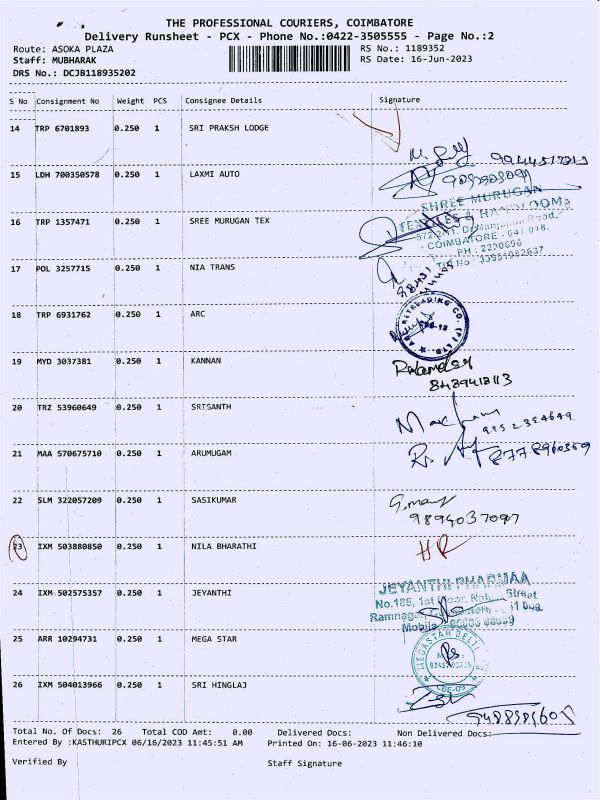 THE PROFESSIONAL COURIERS, COIMBATORE
Delivery Runsheet - PCX - Phone No.:0422-3505555 - Page No.:2
Route: ASOKA PLAZA
RS No.: 1189352
Staff: MUBHARAK
RS Date: 16-Jun-2023
DRS No.: DCJB118935202
S No Consignment No Weight PCS Consignee Details Signature
14 TRP 6701893 0.250 1 SRI PRAKSH LODGE
15 LDH 700350578 0.250 1 LAXMI AUTO
SHREE MURUGAN
16 TRP 1357471 0.250 1 SREE MURUGAN TEX
COIMBATORE - 641 018.
PH : 2230696
17 POL 3257715 0.250 1 NIA TRANS
18 TRP 6931762 0.250 1 ARC
19 MYD 3037381 0.250 1 KANNAN
8489413113
20 TRZ 53960649 0.250 1 SRISANTH
21 MAA 570675710 0.250 1 ARUMUGAM
22 SLM 322057209 0.250 1 SASIKUMAR
9894037097
23 IXM 503880850 0.250 1 NILA BHARATHI
HR
JEYANTHI PHARMAA
24 IXM 502575357 0.250 1 JEYANTHI
No.185, 1st Floor, Street
Mobile
25 ARR 10294731 0.250 1 MEGA STAR
MEGASTAR
CBE-09
26 IXM 504013966 0.250 1 SRI HINGLAJ
Total No. Of Docs: 26 Total COD Amt: 0.00 Delivered Docs: Non Delivered Docs:
Entered By :KASTHURIPCX 06/16/2023 11:45:51 AM Printed On: 16-06-2023 11:46:10
Verified By Staff Signature